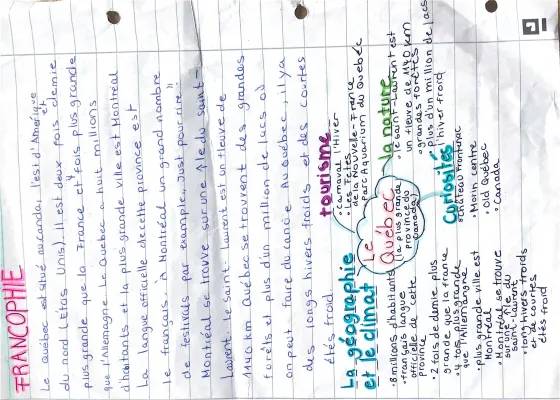 FRANCOPHIE
Le québec est situé au canada, l'est d'Amérique
du nord (États Unis). Il est deux fois et demie
plus grande que la France et fois plus grande
que l'Allemagne Le Quebec a huit millions
d'habitants et la plus grande ville est Montréal
La langue officielle de cette province est
le français. À Montréal un grand nombre
de festivals par example „Just pour rire"
Montréal se trouve sur une île du saint-
Laurent. Le saint-Laurent est un fleuve de
1140 km Québec se trouvent des grandes
forêts et plus d'un million de lacs où
on peut faire du canöe Au québec, il y a
des longs hivers froids et des courtes
étés froid
La géographie
et le climat
• 8 millions d'habitants
• français langue
officielle de cette
province
• 2 fois de demie plus
grande que la france
• 4 fois plus grande
que l'Allemangne
• plus grande ville est
Montréal
• Montréal se trouve
sur une île du
saint-Laurent
• long hivers froids
et de cortes
étés froid
tourisme
• carnaval d'Hiver
• Les Fêtes
de la Nouvelle-France
• Parc Aquarium du Québec
Le
Québec
(la plus grande
province du
Canada)
la nature
• le saint-Laurent est
un fleuve de 1140 km
• grandes forêts
• plus d'un million de lacs
• l'hiver froid
Curiosités
• Château Frontenac
• Morin centre
• Old Québec
• Canada